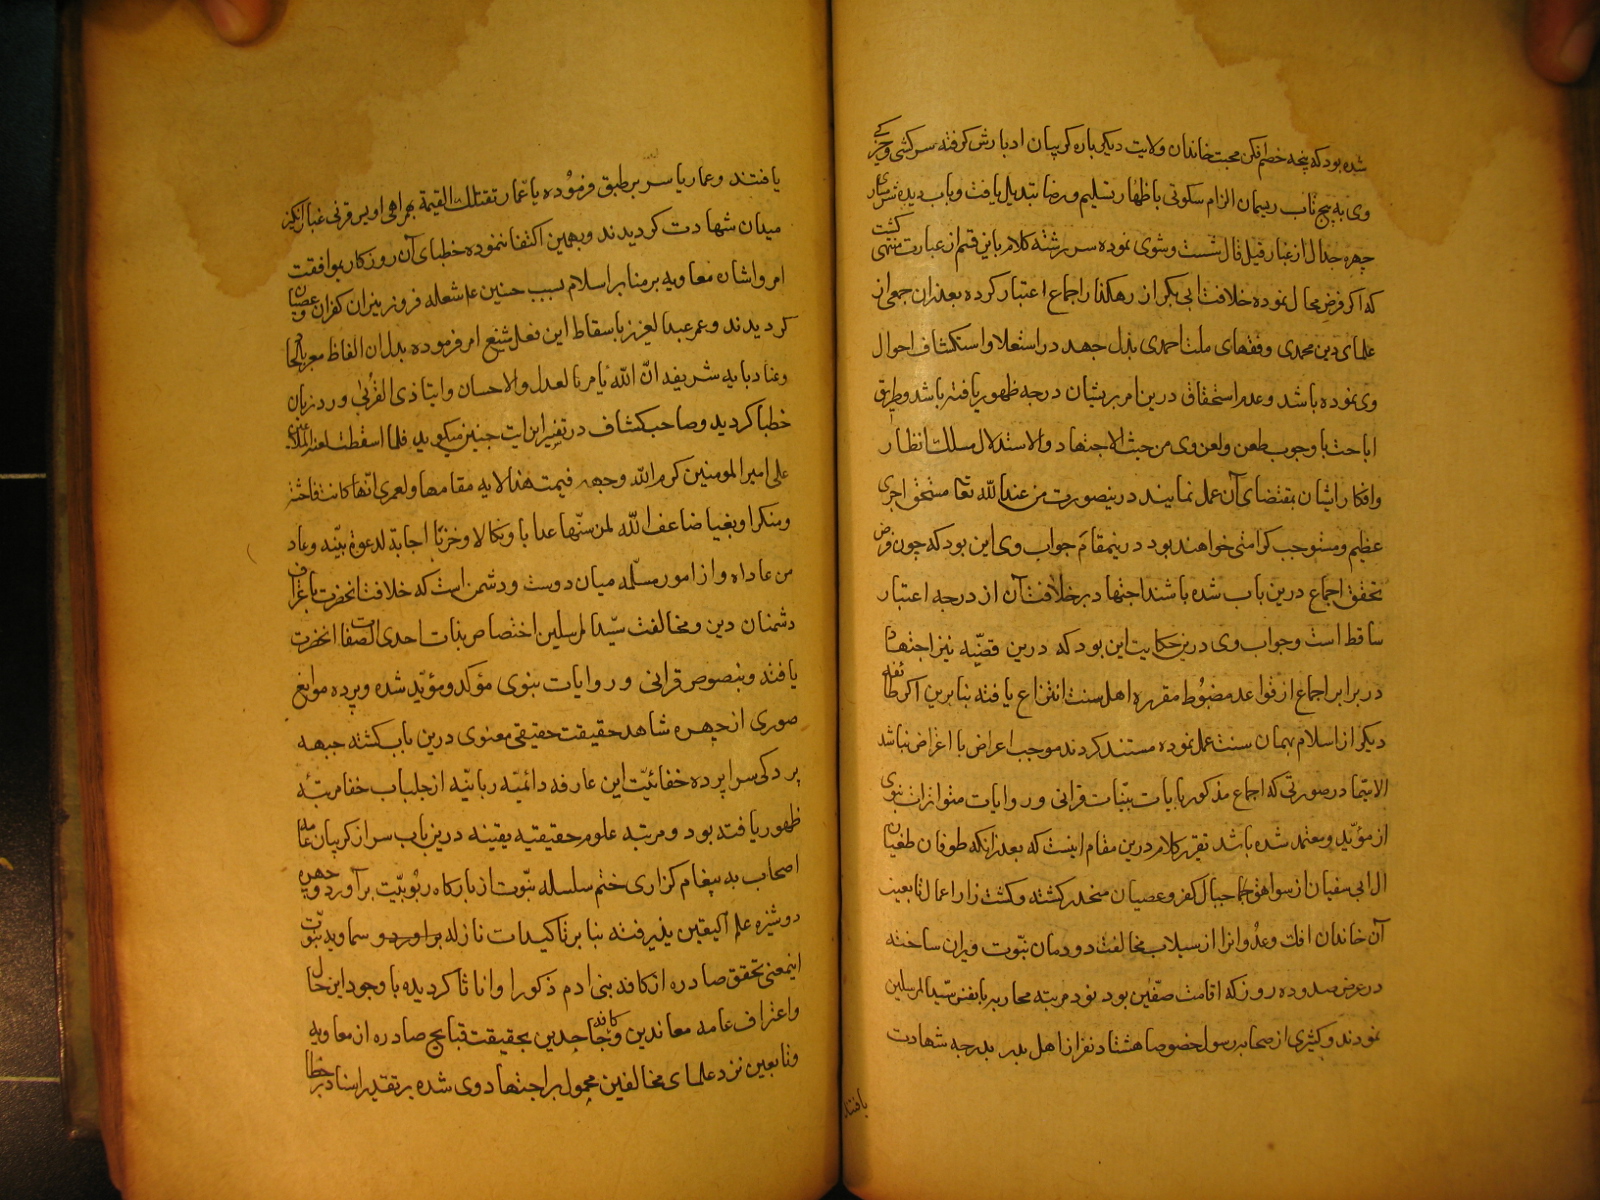 شده بود که پنجه خصم افکن محبت خاندان ولایت دیکر باره کریبان ادبارش کرفته سرکشی و
وی به پیچ تاب ریسمان الزام سکوتی باظهار تسلیم و رضا تبدیل یافت و باب دیده شرمساری
چهره جدال از غبار قیل قال شست و شوی نموده سر رشته کلام باین قسم از عبارت منتهی کشت
که اکر فرض محال نموده خلافت ابی بکر از رهکذار اجماع اعتبار کرده بعد از ان جمعی از
علمای دین محمدی و فقهای ملت احمدی بذل جهد در استعلا و استکشاف احوال
وی نموده باشد و عدم استحقاق درین امر بریشان درجه ظهور یافته باشد و طریق
اباحت یا وجوب طعن و لعن وی من حیث الاجتهاد و الاستدلال مسلک انظار
وافکار ایشان بمقتضای آن عمل نمایند درینصورت من عند الله تعا مستحق اجری
عظیم و مستوجب کرامتی خواهند بود درینمقام جواب وی این بود که چون فرض
تحقق اجماع درین باب شده باشد اجتهاد بر خلاف آن از درجه اعتبار
ساقط است و جواب وی درین حکایت این بود که درین قضیّه نیز اجتهاد
در برابر اجماع از قواعد مضبُوط مقرره اهل سنت انتزاع یافته بنابرین اکر طائفه
دیکر از اسلام بهمان سنت عمل نموده مستند کردند موجب اعراض یا اغراض نباشد
الاسیّما در صورتی که اجماع مذکور بایات بیّنات قرانی و روایات متواترات نبوی
از مؤیّد و معتمد شده باشد تقریر کلام درین مقام اینست که بعد از انکه طوفان طغیان
ال ابی سفیان از سواهق جبال کفر و عصیان منحدر کشته و کشت زار اعمال تابعین
آن خاندان افک و عدُوانرا از سیلاب مخالفت دودمان نبّوت ویران ساخته
در عرض صد و ده روز که اقامت صفّین بود نود مرتبه محاربه با نفس سیّد المرسلین
نمودند و کثیری از صحابه رسول خصوصا هشتاد نفر از اهل بدر بدرجه شهادت
یافتند
یافتند و عمار یاسر بر طبق فرمُوده یا عمّار تقتلک الفیّة بهمراهی اویس قرنی غبار انکیز
میدان شهادت کردیدند و بهمین اکتفا ننموده خطبای آن روزکار بموافقت
امر و اشاره معاویه بر منابر اسلام بسبب حسنین ع شعله فروز نیران کفران و عصیان
کردیدند و عمر عبد العزیز باسقاط این فعل شنیع امر فرموده بدل ان الفاظ
وعناد بایه شریفه انّ الله یامر بالعدل و الاحسان و ایتاء ذی القُربی ورد زبان
خطبا کردید و صاحب کشاف در تفسیر این ایت چنین میکوید فلما اسقطت
علی امیر المومنین کرم الله وجهه قیمت هذا الایه مقامها و لعمری انّها کانت فاحشة
ومنکرا و بغیا ضاعف الله لمن سنّها عذابا و نکالا و خزیًا اجابة لدعوة نبیّه و عاد
من عاداه و از امور مسلّمه میان دوست و دشمن است که خلافت انحضرت باعتراف
دشمنان دین و مخالفت سیّد المرسلین اختصاص بذات احدی الصفات انحضرت
یافته و بنصوص قرانی و روایات نبوی مؤکد و مؤیّد شده و پرده موانع
صوری از چهره شاهد حقیقت حقیقی معنوی درین باب کشته جبهه
پردکی سراپرده خفائیّت این عارفه دائمیّه ربانیّه از جلباب خفا مرتبهٔ
ظهور یافته بود و مرتبه علوم حقیقیّه یقینه درین باب سر از کریبان عامه
اصحاب به پیغام کزاری ختم سلسله نبّوت از بارکاه ربُوبیّت براورد و چهره
دوشیزه علم الیقین پذیرفته بنا بر تاکیدات نازله براورد و سماویه نبّوت
اینمعنی تحقق صادره از کافه بنی ادم ذکورا و اناثا کردیده با وجود این حال
واعتراف عامه معاندین و کافه جاحدین بحقیقت قبایح صادره از معاویه
وتابعین نزد علمای مخالفین محمول بر اجتهاد وی شده بر تقدیر اسناد بر خطا